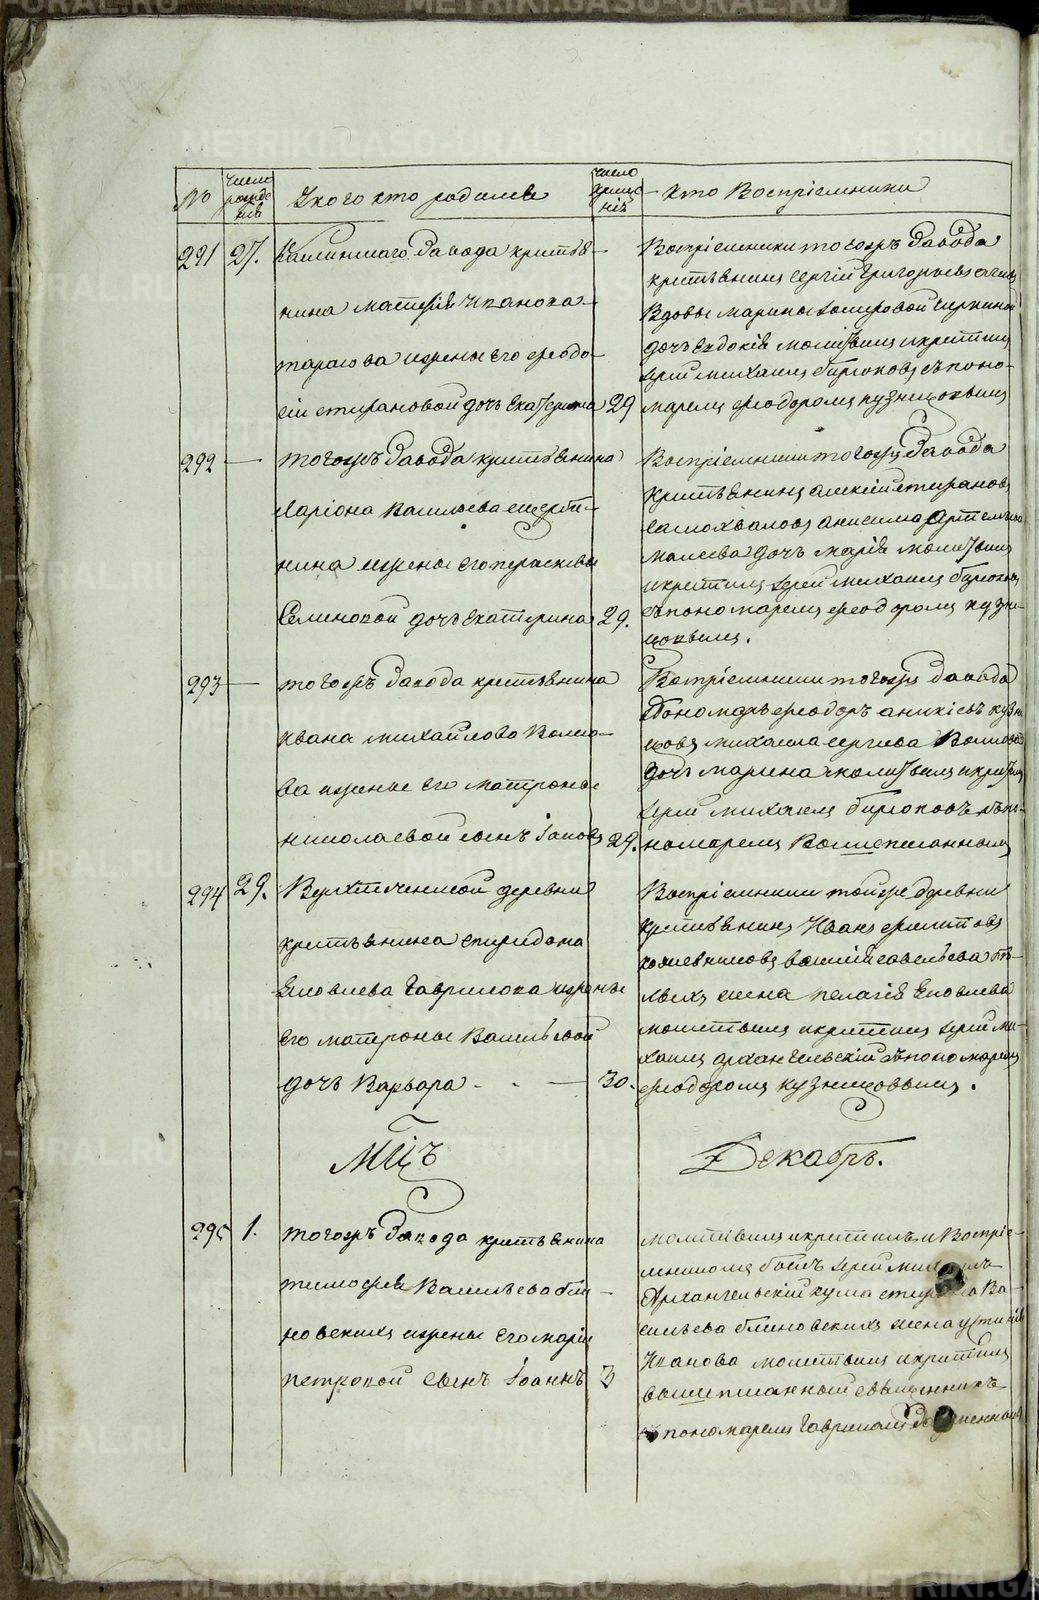 METRIKI.GASO-URAL.RU
№ число рожде ній У кого кто родился число креще ніѣ кто Воспріемники
291 27. Каслинскаго завода крестья-
нина Матфѣя Иванова
Тарасова и жены его Феодо-
сіи Стефановой дочь Екатерина 29
Воспріемники того жъ завода
крестьянинъ Сергій Григорьевъ
вдовы Марины
дочь Евдокія молитвилъ и крестилъ
іерей Михаилъ Бирюковъ съ поно-
маремъ Феодоромъ Кузнецовымъ
292 — того жъ завода крестьянина
Ларіона Васильева
нина и жены его Перасковьи
Семеновой дочь Екатерина 29.
Воспріемники того жъ завода
крестьянинъ Алексій Стефановъ
Самохваловъ Анисима Артемьева
дочь Марія молитвилъ
и крестилъ іерей Михаилъ Бирюковъ
съ пономаремъ Феодоромъ Кузне-
цовымъ.
293 — того жъ завода крестьянина
Ивана Михайлова Волко-
ва и жены его Матроны
Николаевой сынъ Іаковъ 29.
Воспріемники того жъ завода
пономарь Феодоръ Кузне-
цовъ Михаила Сергѣева
дочь Марина молитвилъ и крестилъ
іерей Михаилъ Бирюковъ съ по-
номаремъ вышеписаннымъ
294 29. деревни
крестьянина Спиридона
Яковлева Гаврилова и жены
его Матроны Васильевой
дочь Варвара - - — 30.
Воспріемники той же деревни
крестьянинъ Иванъ Филиповъ
Кожевниковъ Василія Савельева Бѣ-
лыхъ жена Пелагія Яковлева
молитвилъ и крестилъ іерей Ми-
хаилъ Архангельскій съ пономаремъ
Феодоромъ Кузнецовымъ.
Мцъ Декабрь.
295 1. того жъ завода крестьянина
Тимофѣя Васильева Бли-
новскихъ и жены его Маріи
Петровой сынъ Іоаннъ 3
молитвилъ и крестилъ и Воспріе-
мникомъ былъ іерей
Архангельскій кума Ва-
сильева Блиновскихъ жена Устинія
Иванова молитвилъ и крестилъ
вышеписанный священникъ
съ пономаремъ Гавриломъ